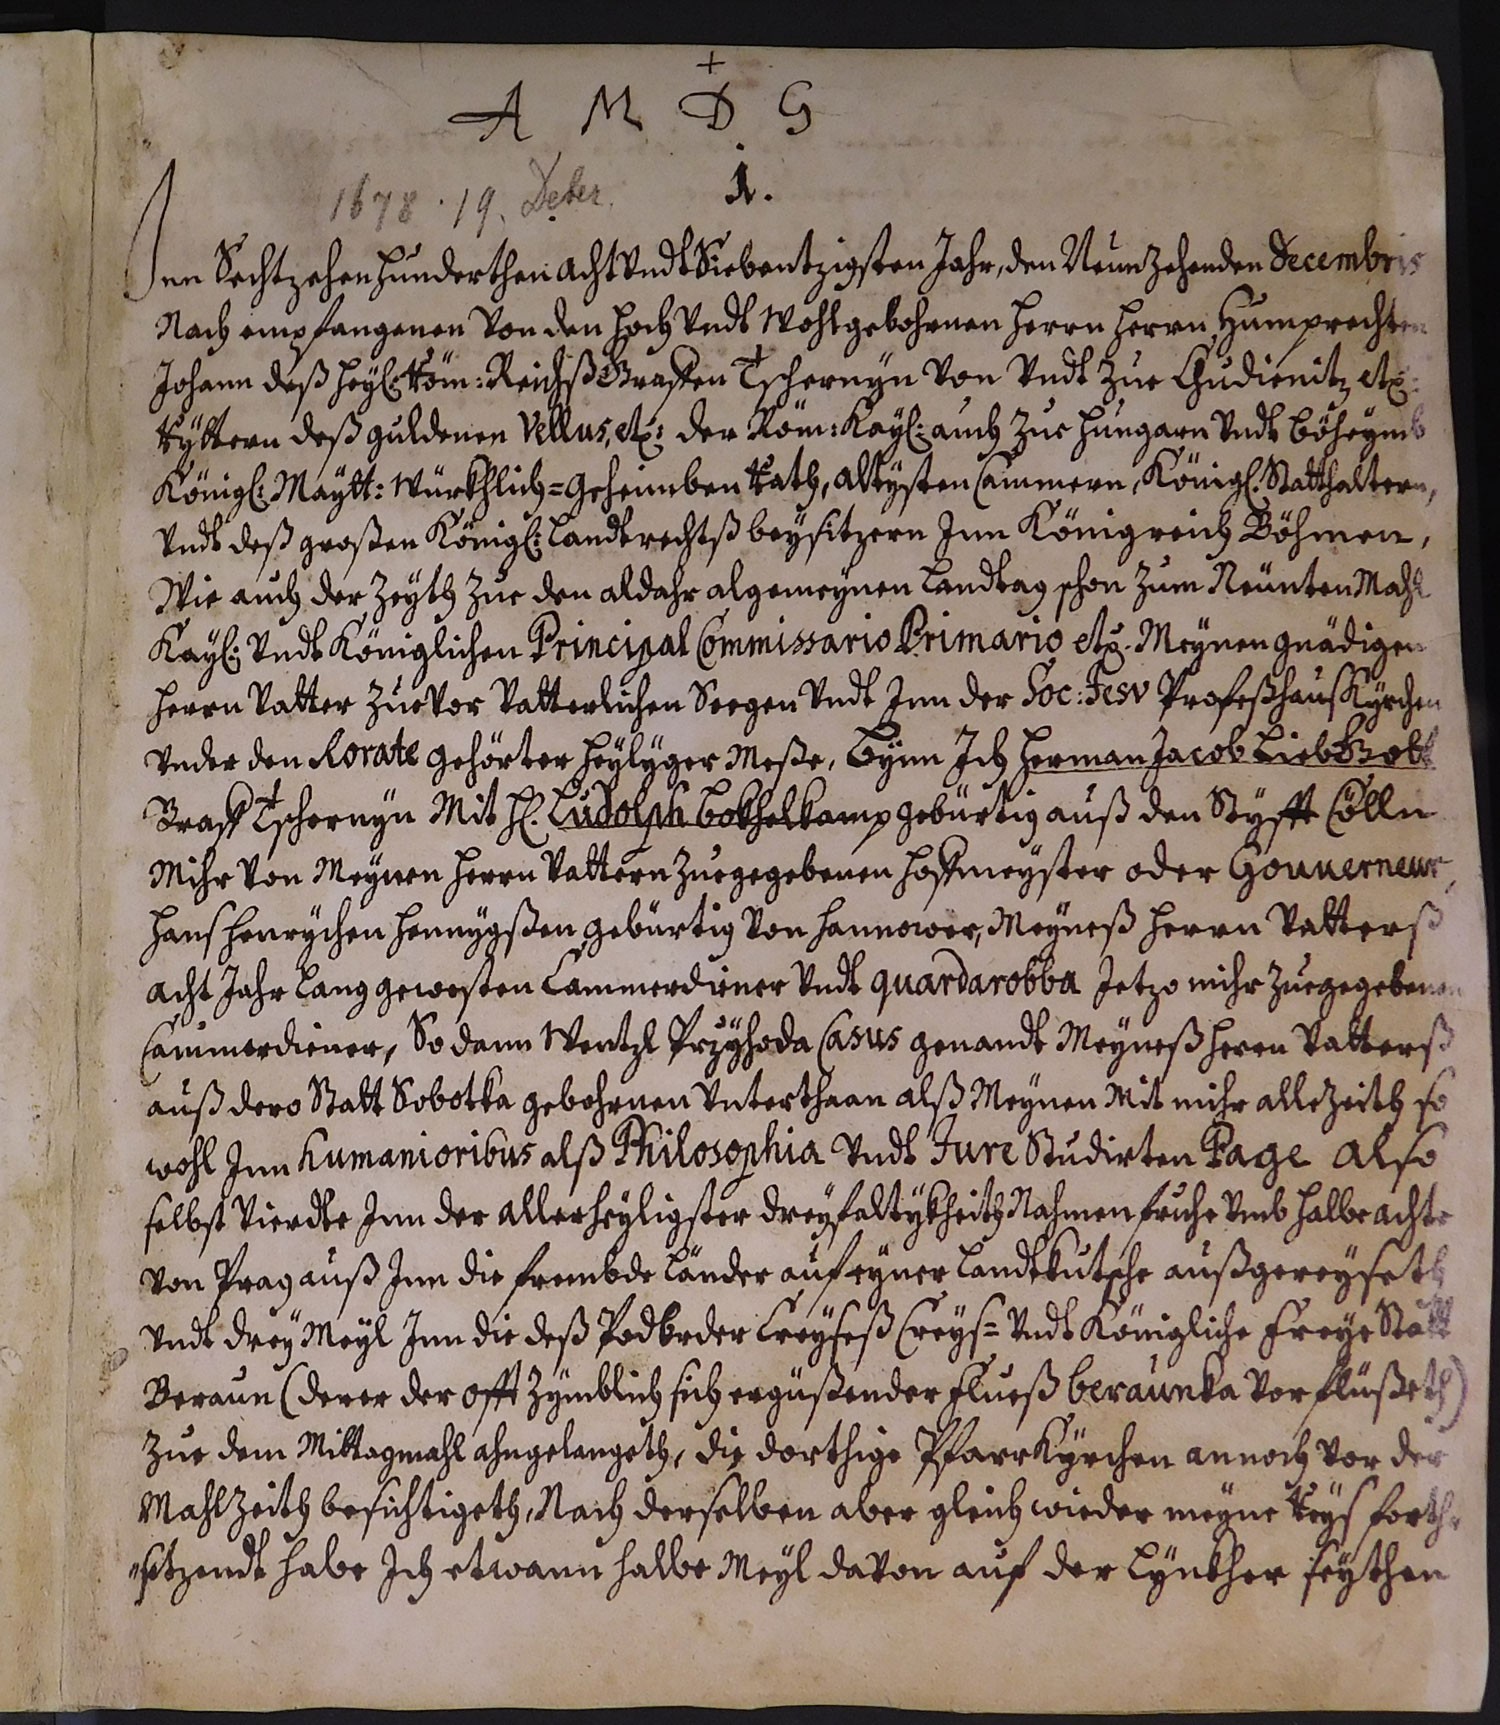 +
A M D G
1678 . 19. Deber.
1.
Inn Sechtzehenhunderthen acht Vndt Siebentzigsten Jahr, den Neunzehenden Decembris
Nach empfangenen Von den Hoch Vndt Wohlgebohrnen Herrn Herrn Humprechten
Johann deß Heyl: Röm: Reichß Graffen Tschernyn Von Vndt Zue Chudienitz etz:
Ryttern deß guldenen Vellus, etz: der Röm: Kayl: auch Zue Hungarn Vndt Böheymb
Königl: Maytt: Würkhlich=Geheimben Rath, Altysten Cammern, Königl. Statthaltern,
Vndt deß großen Königl: Landtrechtß beysitzern Inn Königreich Böhmen,
Wie auch der Zeyth Zue den aldahr algemeynen Landtag schon Zum Neünten Mahl
Kayl: Vndt Königlichen Principal Commissario Primario etz. Meynen gnädigen
Herrn Vatter Zuevor Vatterlichen Seegen Vndt Inn der Soc: Jesv Profeßhauß Kyrchen
Vnder den Rorate gehörter Heylyger Meße, Bynn Ich Herman Jacob Liebgott
Graff Tschernyn Mit H. Ludolph Bokhelkamp gebürtig auß den Styfft Cölln
Mihr Von Meynen Herrn Vattern Zuegegebenen Hoffmeyster oder Gouuerneur,
Hanß Henrychen Hennygßen gebürtig Von Hannower, Meyneß Herrn Vatterß
acht Jahr Lang gewesten Cammerdiener Vndt quardarobba Jetzo mihr Zuegegebenen
Cammerdiener, So dann Wentzl Przyhoda Casus genandt Meyneß Herrn Vatterß
auß dero Statt Sobotka gebohrnen Vnterthaan alß Meynen Mit mihr alle Zeith so
wohl Inn humanioribus alß Philosophia Vndt Jure Studirten Page also
selbst Vierdte Inn der allerheyligster dreyfaltykheith Nahmen fruhe Vmb halbe achte
Von Prag auß Inn die frembde Länder auf eyner Landtkutsche außgereyseth
Vndt drey Meyl Inn die deß Podbrder Creyseß Creys= Vndt Königliche Freye Statt
Beraun (derer der offt Zymblich sich ergüßender Flueß beraunka Vorflüßeth)
Zue dem Mittagmahl ahngelangeth, die dorthige PfarrKyrchen annoch Vor der
MahlZeith besichtigeth, Nach derselben aber gleich wieder meyne Reys forth=
=setzendt habe Ich etwann halbe Meyl davon auf der Lynkher seythen